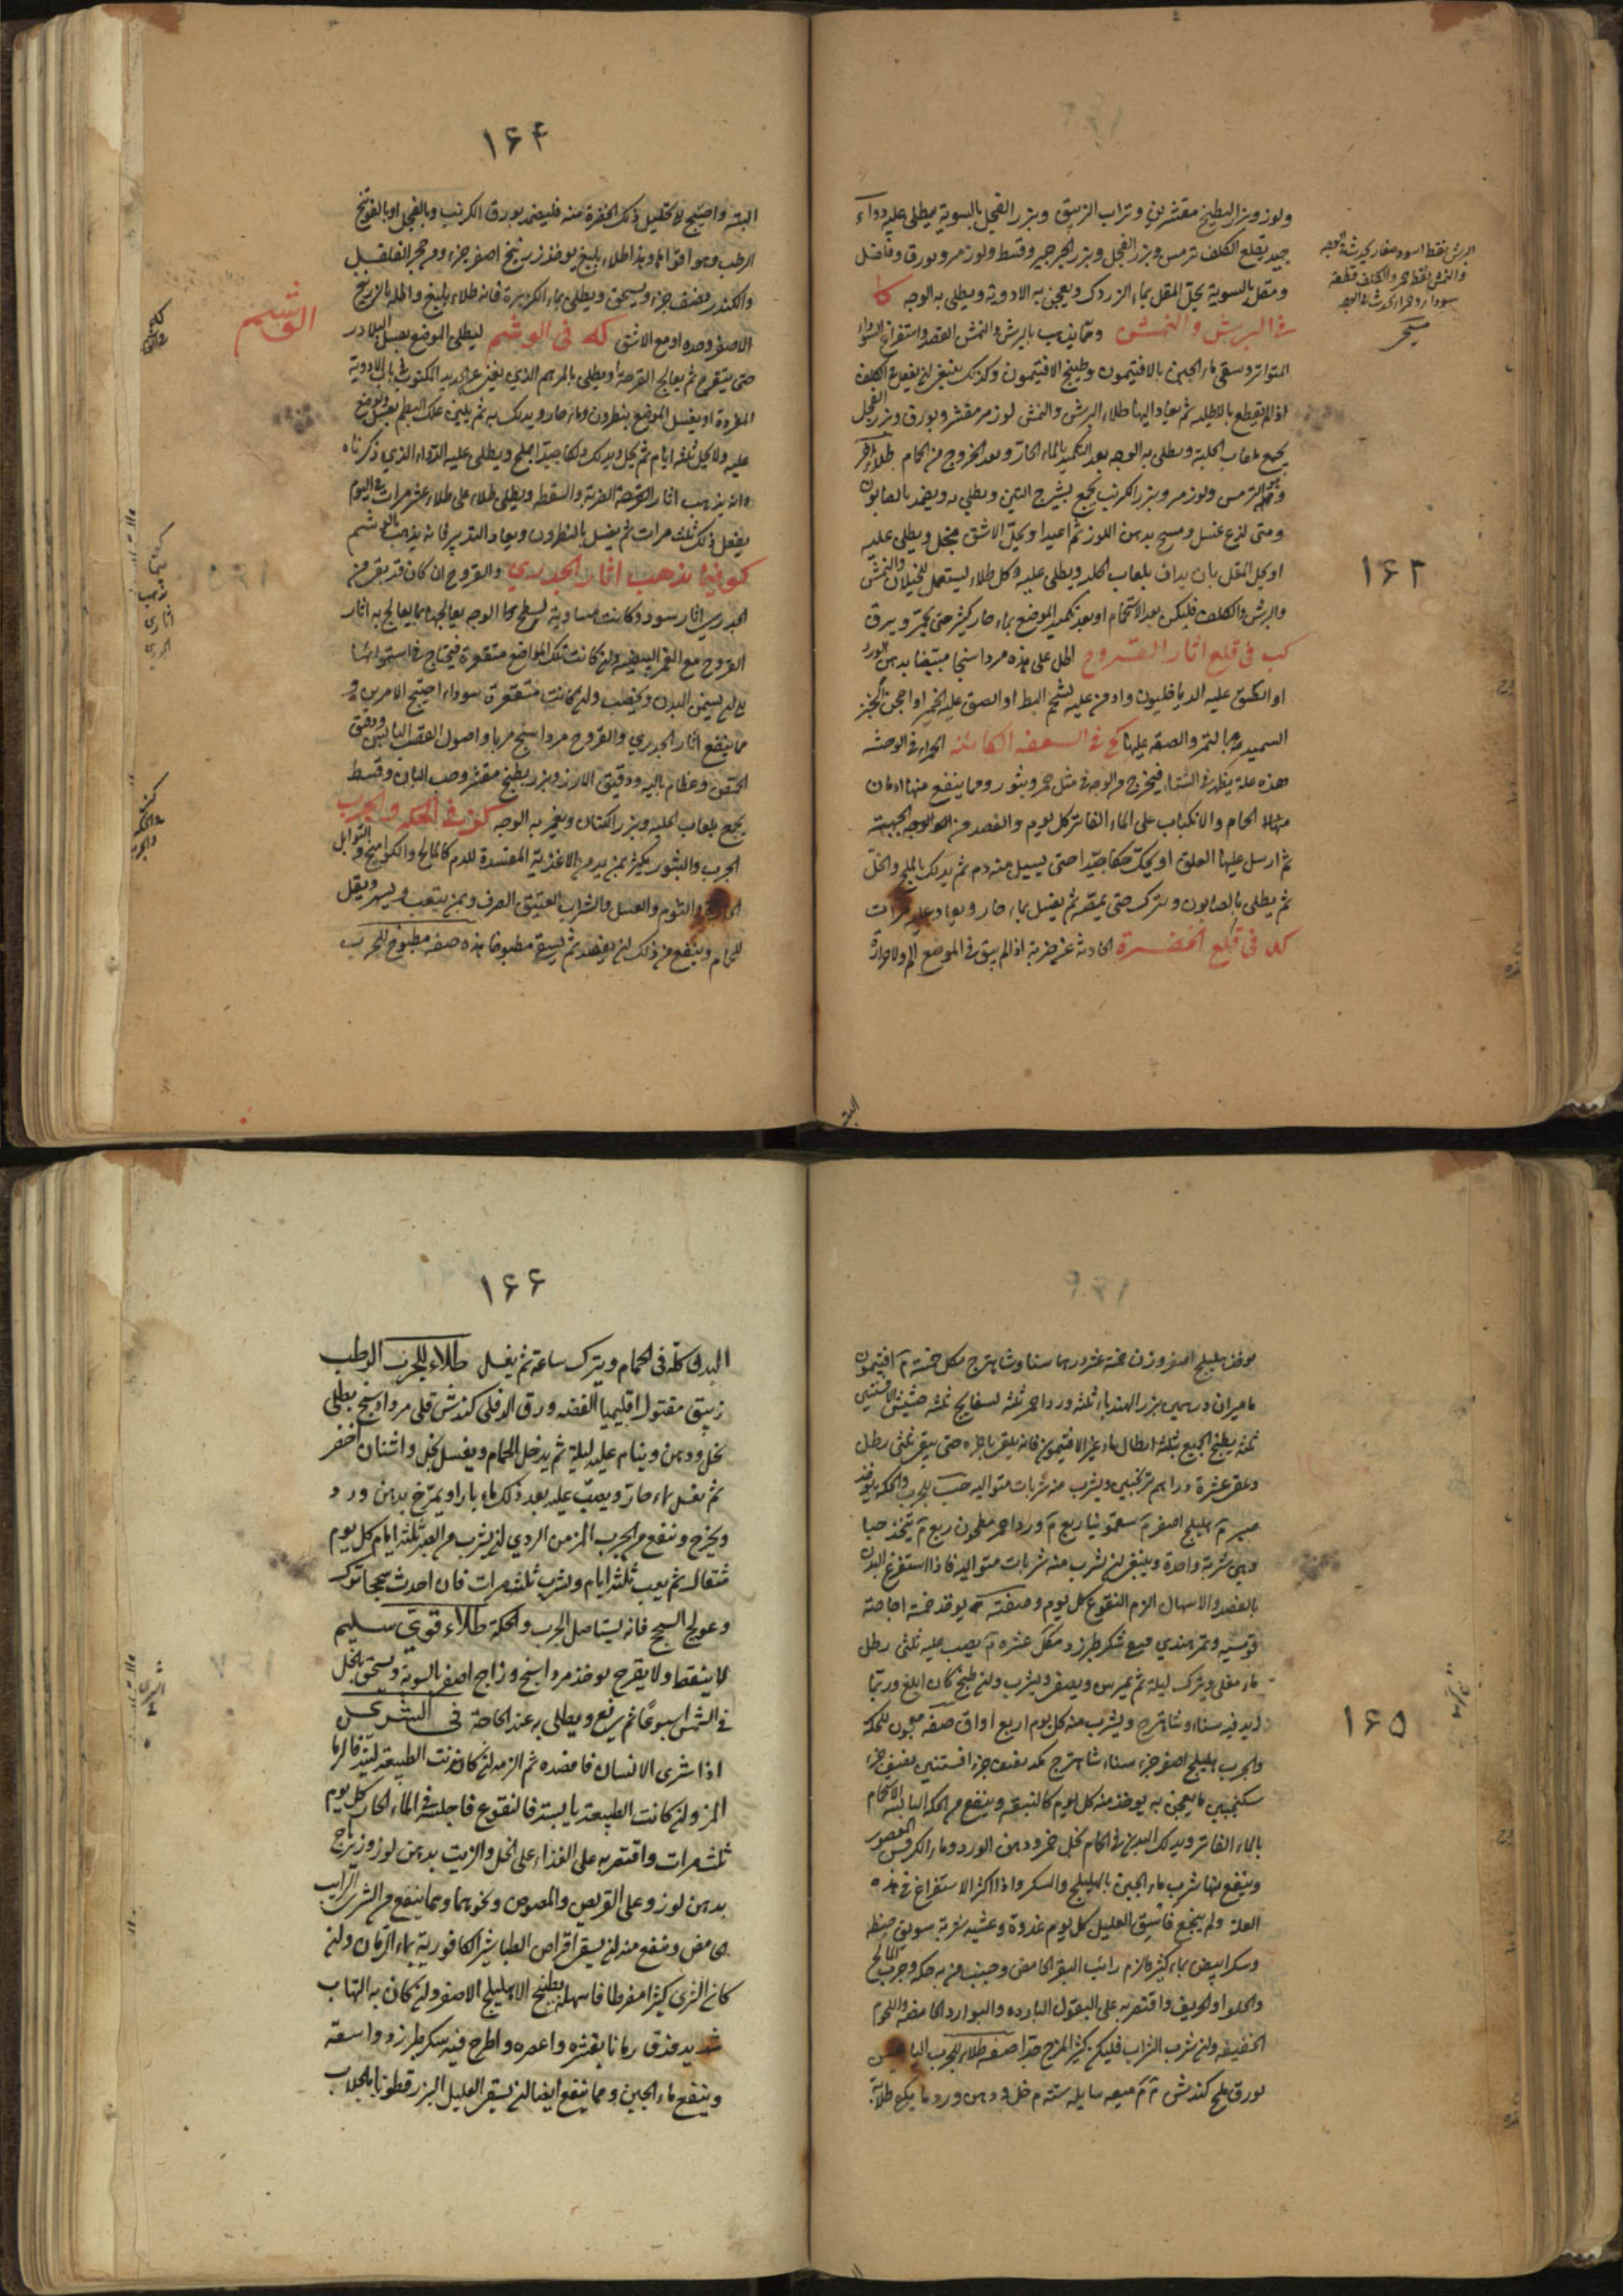 ولوز وبزر البطيخ مقشرين وتراب الزيبق وبزر الفجل بالسوية يطلى عليه دواء
جيد يقلع الكلف ترمس وبزر الفجل وبزر الجرجير وقسط ولوز مر وبورق وفلفل
ومقل بالسوية يحل المقل بماء الزردك ويعجن به الادوية ويطلى به الوجه كا
فى البرش والنمش ومما يذهب بالبرش والنمش الفصد واستفراغ السوداء
المتواتر وسقى ماء الجبن بالافتيمون وطبيخ الافتيمون وكذلك ينبغى ان يفعل فى الكلف
اذا لم يقطع بالاطلية ثم يعاد اليها طلاء البرش والنمش لوز مر مقشر وبورق وبزر الفجل
يجمع بلعاب الحلبة ويطلى به الوجه بعد التكميد بالماء الحار وبعد الخروج من الحمام طلاء اخر
الترمس ولوز مر وبزر الكرنب يجمع بشيرج التين ويطلى به ويضمد بالصابون
ومتى لذع غسل ومسح بدهن اللوز ثم اعيد او يحل الاشق بخل ويطلى عليه
او يحل المقل بان يداف بلعاب الحلبة ويطلى عليه وكل طلاء يستعمل للخيلان والنمش
والبرش والكلف فليكن بعد الاستحمام او بعد تكميد الموضع بماء حار كثير حتى يحمر ويبرق
كب فى قلع اثار القروح اطل على هذه مرداسنجا مبيضا بدهن الورد
او الصق عليه الدياخليون وادمن عليه بشحم البط او الصق عليه الخمير او اعجن الخبز
السميد بالتمر والصقه عليها كج فى السعفه الكائنه الحمراء فى الوجه
هذه علة يظهر فى الشتاء فيخرج فى الوجه مثل حمر وبثور ومما ينفع منها ادمان
الحمام والانكباب على الماء الفاتر كل يوم والفصد من الجبهة
ثم ارسل عليها العلق او يحك حكا جيدا حتى يسيل منه دم ثم يدلك بالملح والخل
ثم يطلى بالصابون ويترك حتى ثم يغسل بماء حار ويعاد عليه مرات
كد فى قلع الخضرة الحادثة عن ضربة اذا لم يبق فى الموضع الم ولا حرارة
البته
۱۶۳
۱۶۴
البته واحتيج لا تحليل ذلك الخضرة منه فليضمد بورق الكرنب وبالفجل او بالفوتنج
الرطب وهو اقواها وهذا طلاء بليغ يوخذ زرنيخ اصفر جزء ومن حجر الفلفل
والكندر نصف جزء ويسحق ويطلى بماء الكزبرة فانه طلاء بليغ واطله بالزرنيخ
الاصفر وحده او مع الاشق كه فى الوشم ليطلى الموضع بعسل البلادر
الوشم
حتى يتقرح ثم يعالج القرحة او يطلى بالمرهم الذي المكتوب فى باب الادوية
المفردة او يغسل الموضع بنطرون وماء حار ويدلك به ثم يلين علك البطم بعسل ويوضع
عليه ولا يحل ثلثة ايام ثم يحل ويدلك دلكا جيدا بملح ويطلى عليه الدواء الذي ذكرناه
انه يذهب اثار الضربة والسقطة ويطلى طلاء على طلاء عشر مرات فى اليوم
يفعل ذلك ثلث مرات ثم يغسل بالنطرون ويعاد التدبير فانه يذهب بالوشم
كو فيما يذهب اثار الجدري والقروح ان كان قد بقى من
الجدري اثار سود وكانت مساوية لسطح الوجه يعالجها بما يعالج به اثار
القروح مع وان كانت تلك المواضع متقعرة فيحتاج فى استوائها
الى ان يسمن البدن ويخصب وان كانت متقعرة سوداء احتيج الامرين و
مما ينفع اثار الجدري والقروح مرداسنج مربا واصول القصب اليابس ودقيق
الحمص وعظام باليه ودقيق الارز وبزر بطيخ مقشر وحب البان وقسط
يجمع بلعاب الحلبه وبزر الكتان ويغمر به الوجه كز فى الحكه والجرب
الجرب والبثور يكثر بمن يدمن الاغذية المفسدة للدم كالمالح والكواميخ والتوابل
الحارة والثوم والعسل والشراب العتيق الصرف وبمن يتعب ويسهر ويقل
الحمام وينفع من ذلك ان يفصد ثم يسقى مطبوخا هذه صفة مطبوخ للجرب
يوخذ هليلج اصفر وزن خمسة عشر درهما سنا وشاهترج مكل خمسة م افتيمون
ماميران درهمين بزر الهندباء ثلثه ورد احمر ثلثه بسفايج ثلثه حشيش الافسنتين
ثلثه يطبخ الجميع بثلثة ارطال ماء غير الافتيمون فانه يلقى باخره حتى يبقى ثلثى رطل
ويلقى عشرة دراهم ترنجبين ويشرب منه شربات متواليه حب للجرب والحكة يوخذ
صبر م هليلج اصفر م سقمونيا ربع م ورد احمر مطحون ربع م يتخذ حبا
وهى شربة واحدة وينبغى ان يشرب منه شربات متواليه فاذا استفرغ البدن
بالفصد والاسهال الزم النقوع كل يوم وصفته يوخذ خمسة اجاصة
وتمر هندي مع سكر طبرزد مكل عشره م يصب عليه ثلثى رطل
ماء مغلى ويترك ليلة ثم يمرس ويصفى ويشرب وان طبخ كان ابلغ وربما
زيد فيه سنا وشاهترج ويشرب منه كل يوم اربع اواق صفة معجون للحكه
والجرب هليلج اصفر جزء سنا وشاهترج مكد نصف جزء افسنتين نصف جزء
سكنجبين ما يعجن به يوخذ منه كل يوم كالبندقه وينفع من الحكه اليابسة الاستحمام
بالماء الفاتر ويدلك البدن فى الحمام بخل خمر ودهن الورد وماء الكرفس المعصور
وينفع منها شرب ماء الجبن بالهليلج والسكر واذا اكثر الاستفراغ فى هذه
العلة ولم ينجع فاسق العليل كل يوم غدوة وعشيه شربة سويق حنطه
وسكر ابيض بماء كثير والزم رائب البقر الحامض وجنب من به حكه وجرب المالح
والحلو والحريف واقتصر به على البقول البارده والبوارد الحامضه واللحوم
الخفيفه وان شرب الشراب فليكن كثير المزج جدا صفة طلاء للجرب اليابس
بورق ملح كندش م م ميعه سايله ستة م خل ودهن ورد ما يكون طلاء
۱۶۵
۱۶۶
البدن كله فى الحمام ويترك ساعة ثم يغسل طلاء للجرب الرطب
زيبق مقتول اقليميا الفضه ورق الدفلى كندش قلى مرداسنج يطلى
بخل ودهن وينام عليه ليلة ثم يدخل الحمام ويغسل بخل واشنان اخضر
ثم يغسل بماء حار ويصب عليه بعد ذلك ماء باردا ويمرخ بدهن ورد
ويخرج وينفع من الجرب المزمن الردي ان يشرب من الصبر ثلثة ايام كل يوم
مثقال ثم يغب ثلثة ايام ويشرب ثلث مرات فان احدث سحجا ترك
وعولج السحج فانه يستاصل الجرب والحكة طلاء قوي سليم
لا ينفط ولا يقرح يوخذ مرداسنج وزاج اصفر بالسوية ويسحق بالخل
فى الشمس اسبوعا ثم يرفع ويطلى به عند الحاجة فى الشرى
اذا شرى الانسان فافصده ثم الزمه ان كانت الطبيعة لينة ماء الرمان
المز وان كانت الطبيعة يابسة فالنقوع فاجلسه فى الماء الحار كل يوم
ثلث مرات واقتصر به على الغذاء على الخل والزيت بدهن لوز وزيرباج
بدهن لوز وعلى القريص والمصوص ونحوهما ومما ينفع من الشرى الرايب
الحامض وينفع منه ان يسقى اقراص الطباشير الكافورية بماء الرمان وان
كان الشرى كثيرا مفرطا فاسهله بطبيخ الاهليلج الاصفر وان كان به التهاب
شديد فدق رمانا بقشره واعصره واطرح فيه سكر طبرزد واسقه
وينفع ماء الجبن ومما ينفع ايضا ان يسقى العليل البزرقطونا بالجلاب